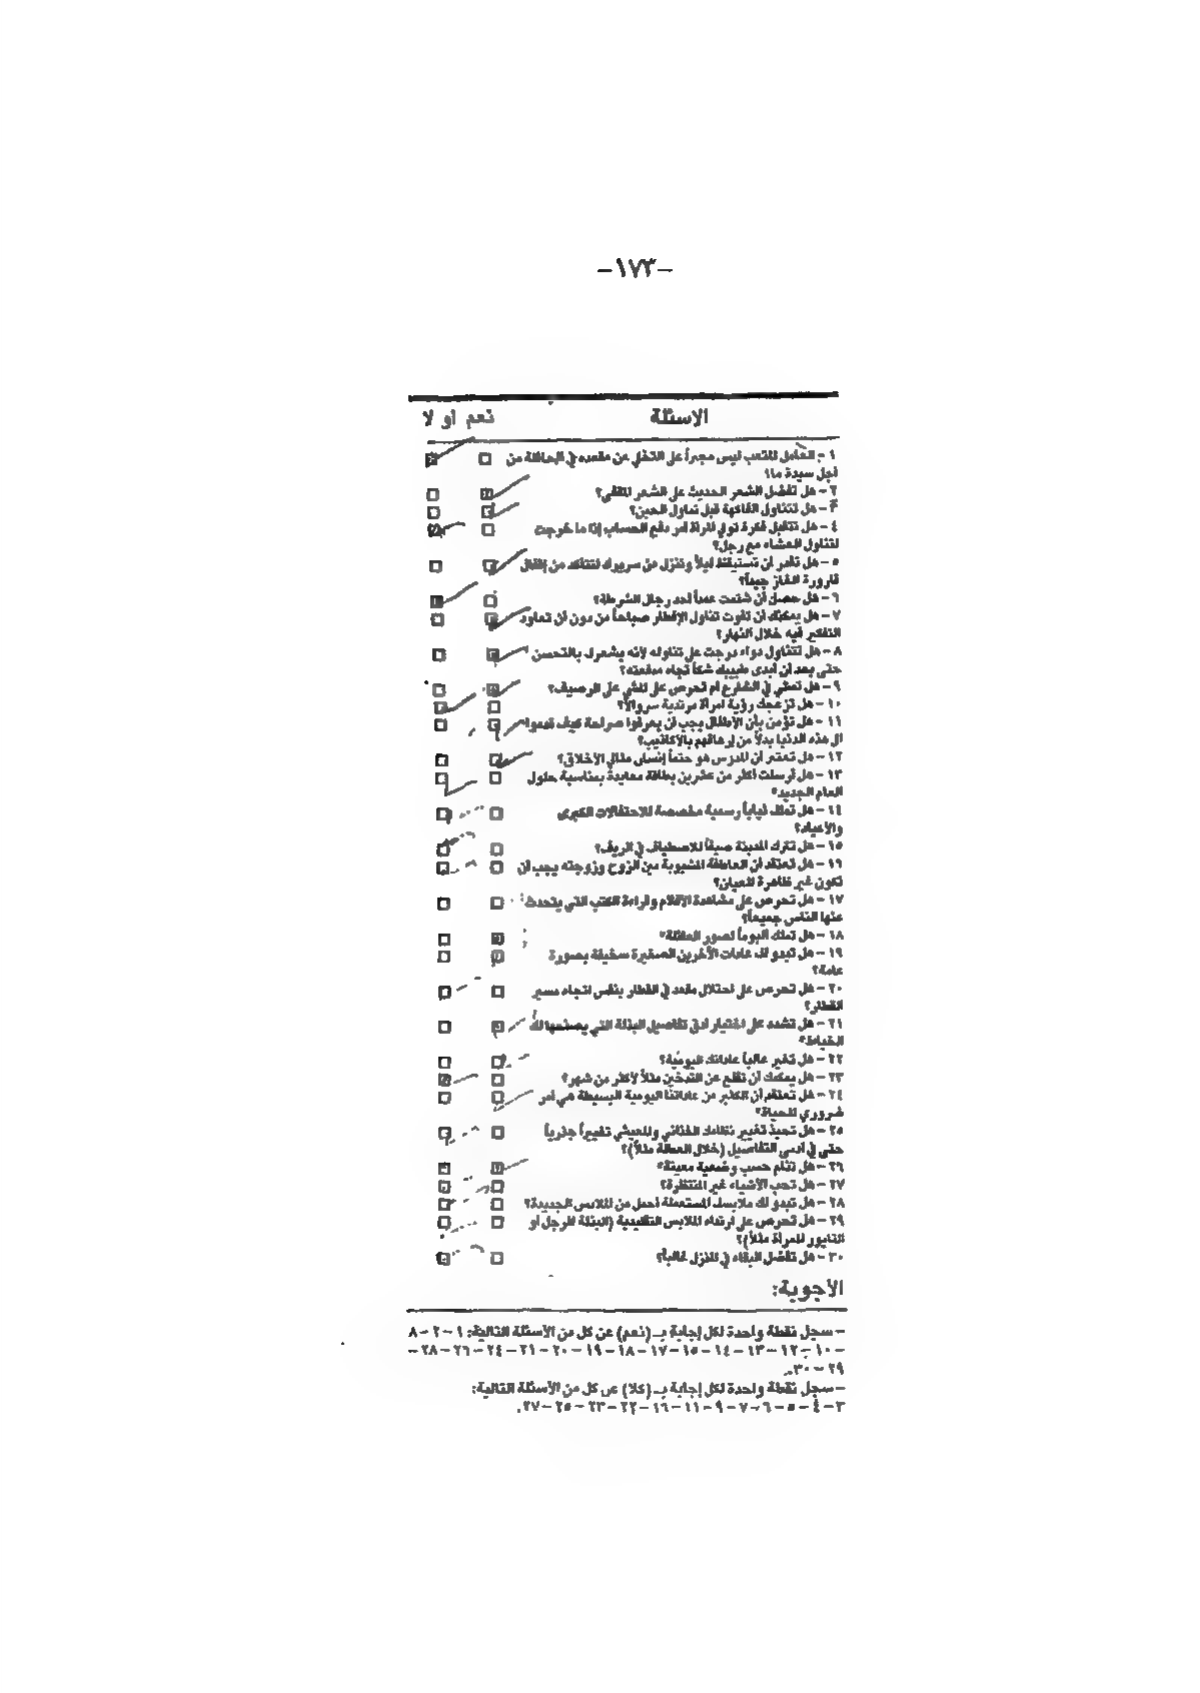 -١٧٣-
الاسئلة نعم او لا
١ - العامل المتعب ليس مجبراً على التخلي عن مقعده في الحافلة من
أجل سيدة ما؟
٢ - هل تفضل الشعر الحديث على الشعر المقفى؟
٣ - هل تتناول الفاكهة قبل تناول الجبن؟
٤ - هل تتقبل فكرة تولي المرأة أمر دفع الحساب إذا ما خرجت
لتناول العشاء مع رجل؟
٥ - هل نادر ان تستيقظ ليلاً وتنزل من سريرك لتتأكد من إقفال
قارورة الغاز جيداً؟
٦ - هل حصل أن شتمت عمداً أحد رجال الشرطة؟
٧ - هل يمكنك ان تفوت تناول الإفطار صباحاً من دون أن تعاود
التفكير فيه خلال النهار؟
٨ - هل تتناول دواء درجت على تناوله لأنه يشعرك بالتحسن
حتى بعد أن أبدى طبيبك شكاً تجاه منفعته؟
٩ - هل تمشي في الشارع ام تحرص على المشي على الرصيف؟
١٠ - هل تزعجك رؤية امرأة مرتدية سروالاً؟
١١ - هل تؤمن بأن الأطفال يجب أن يعرفوا صراحة كيف قدموا
الى هذه الدنيا بدلاً من إرهاقهم بالأكاذيب؟
١٢ - هل تعتبر ان المدرس هو حتماً إنسان مثالي الأخلاق؟
١٣ - هل أرسلت أكثر من عشرين بطاقة معايدة بمناسبة حلول
العام الجديد؟
١٤ - هل تملك ثياباً رسمية مخصصة للاحتفالات الكبرى
والأعياد؟
١٥ - هل تترك المدينة صيفاً للاصطياف في الريف؟
١٦ - هل تعتقد أن العاطفة المشبوبة بين الزوج وزوجته يجب أن
تكون غير ظاهرة للعيان؟
١٧ - هل تحرص على مشاهدة الأفلام وقراءة الكتب التي يتحدث
عنها الناس جميعاً؟
١٨ - هل تملك البوماً لصور العائلة؟
١٩ - هل تبدو لك عادات الآخرين الصغيرة سخيفة بصورة
عامة؟
٢٠ - هل تحرص على احتلال مقعد في القطار بنفس اتجاه مسير
القطار؟
٢١ - هل تشدد على اختيار ادق تفاصيل البذلة التي يصنعها لك
الخياط؟
٢٢ - هل تغير غالباً عاداتك اليومية؟
٢٣ - هل يمكنك أن تقلع عن التدخين مثلاً لأكثر من شهر؟
٢٤ - هل تعتقد أن الكثير من عاداتنا اليومية البسيطة هي أمر
ضروري للحياة؟
٢٥ - هل تحبذ تغيير نظامك الغذائي والمعيشي تغييراً جذرياً
حتى في أدنى التفاصيل (خلال العطلة مثلاً)؟
٢٦ - هل تنام حسب وضعية معينة؟
٢٧ - هل تحب الأشياء غير المنتظرة؟
٢٨ - هل تبدو لك ملابسك المستعملة أجمل من الملابس الجديدة؟
٢٩ - هل تحرص على ارتداء الملابس التقليدية (البذلة للرجل أو
التايور للمرأة مثلاً)؟
٣٠ - هل تفضل البقاء في المنزل غالباً؟
الأجوبة:
- سجل نقطة واحدة لكل إجابة بـ (نعم) عن كل من الأسئلة التالية: ١ - ٢ - ٨
- ١٠ - ١٢ - ١٣ - ١٤ - ١٥ - ١٧ - ١٨ - ١٩ - ٢٠ - ٢١ - ٢٤ - ٢٦ - ٢٨ -
٢٩ - ٣٠.
- سجل نقطة واحدة لكل إجابة بـ (كلا) عن كل من الأسئلة التالية:
٣ - ٤ - ٥ - ٦ - ٧ - ٩ - ١١ - ١٦ - ٢٢ - ٢٣ - ٢٥ - ٢٧.